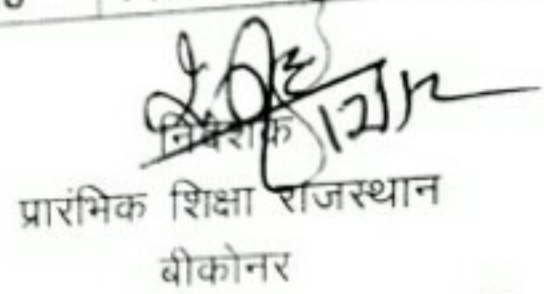 निदेशक
प्रारंभिक शिक्षा राजस्थान
बीकोनर